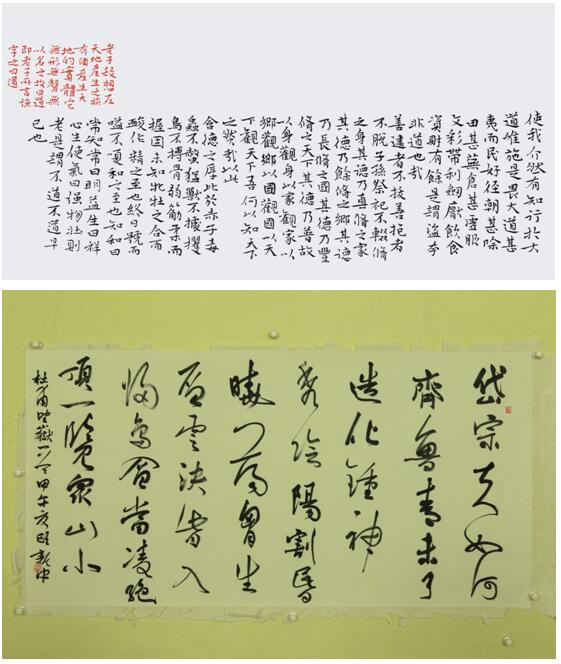 使我介然有知行於大
道唯施是畏大道甚
夷而民好徑朝甚除
田甚蕪倉甚虛服
文彩帶利劍厭飲食
資財有餘是謂盜夸
非道也哉
善建者不拔善抱者
不脫子孫祭祀不輟脩
之身其德乃真脩之家
其德乃餘脩之鄉其德
乃長脩之國其德乃豐
脩之天下其德乃普故
以身觀身以家觀家以
鄉觀鄉以國觀國以天
下觀天下吾何以知天下
之然哉以此
含德之厚比於赤子毒
蟲不螫猛獸不據攫
鳥不搏骨弱筋柔而
握固未知牝牡之合而
酸作精之至也終日號而
嗌不嗄和之至也知和曰
常知常曰明益生曰祥
心使氣曰強物壯則
老是謂不道不道早
已也
老子設想在
天地產生之前
有個產生天
地的實體它
無形無聲無
以名之故曰道
即老子所言強
字之曰道
岱宗夫如何
齊魯青未了
造化鍾神
秀陰陽割昏
曉蕩胸曾生
層雲決眥入
歸鳥會當凌絕
頂一覽衆山小
杜甫望嶽一首甲午